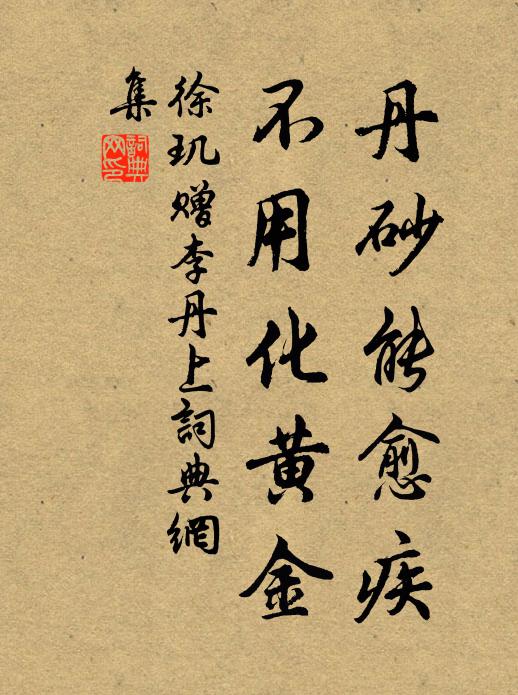 丹砂能愈疾
不用化黄金
徐玑赠李丹上詞典網
集
詞典
网印